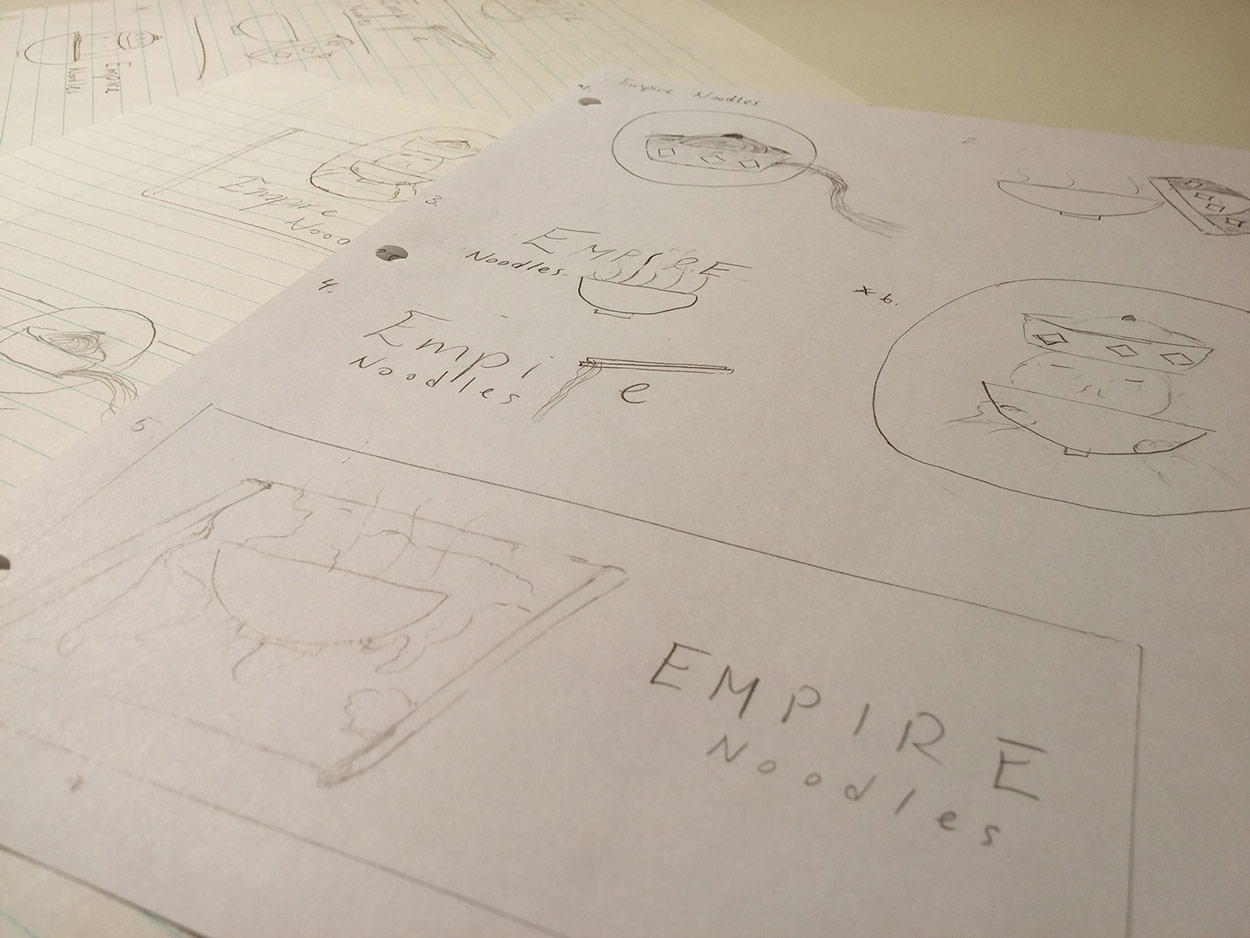 Empire Noodles
2.
3.
EMPIRE
Noodles
4.
Empi e
Noodles
* 6.
5.
EMPIRE
Noodles
Empire
Noo
Empire
Noodles